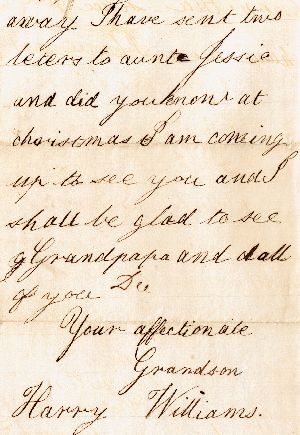 away I have sent two
leters to aunt Jessie
and did you know at
christmas I am coming
up to see you and I
shall be glad to see
g Grandpapa and d all
of you
Your affectionate
Grandson
Harry Williams.